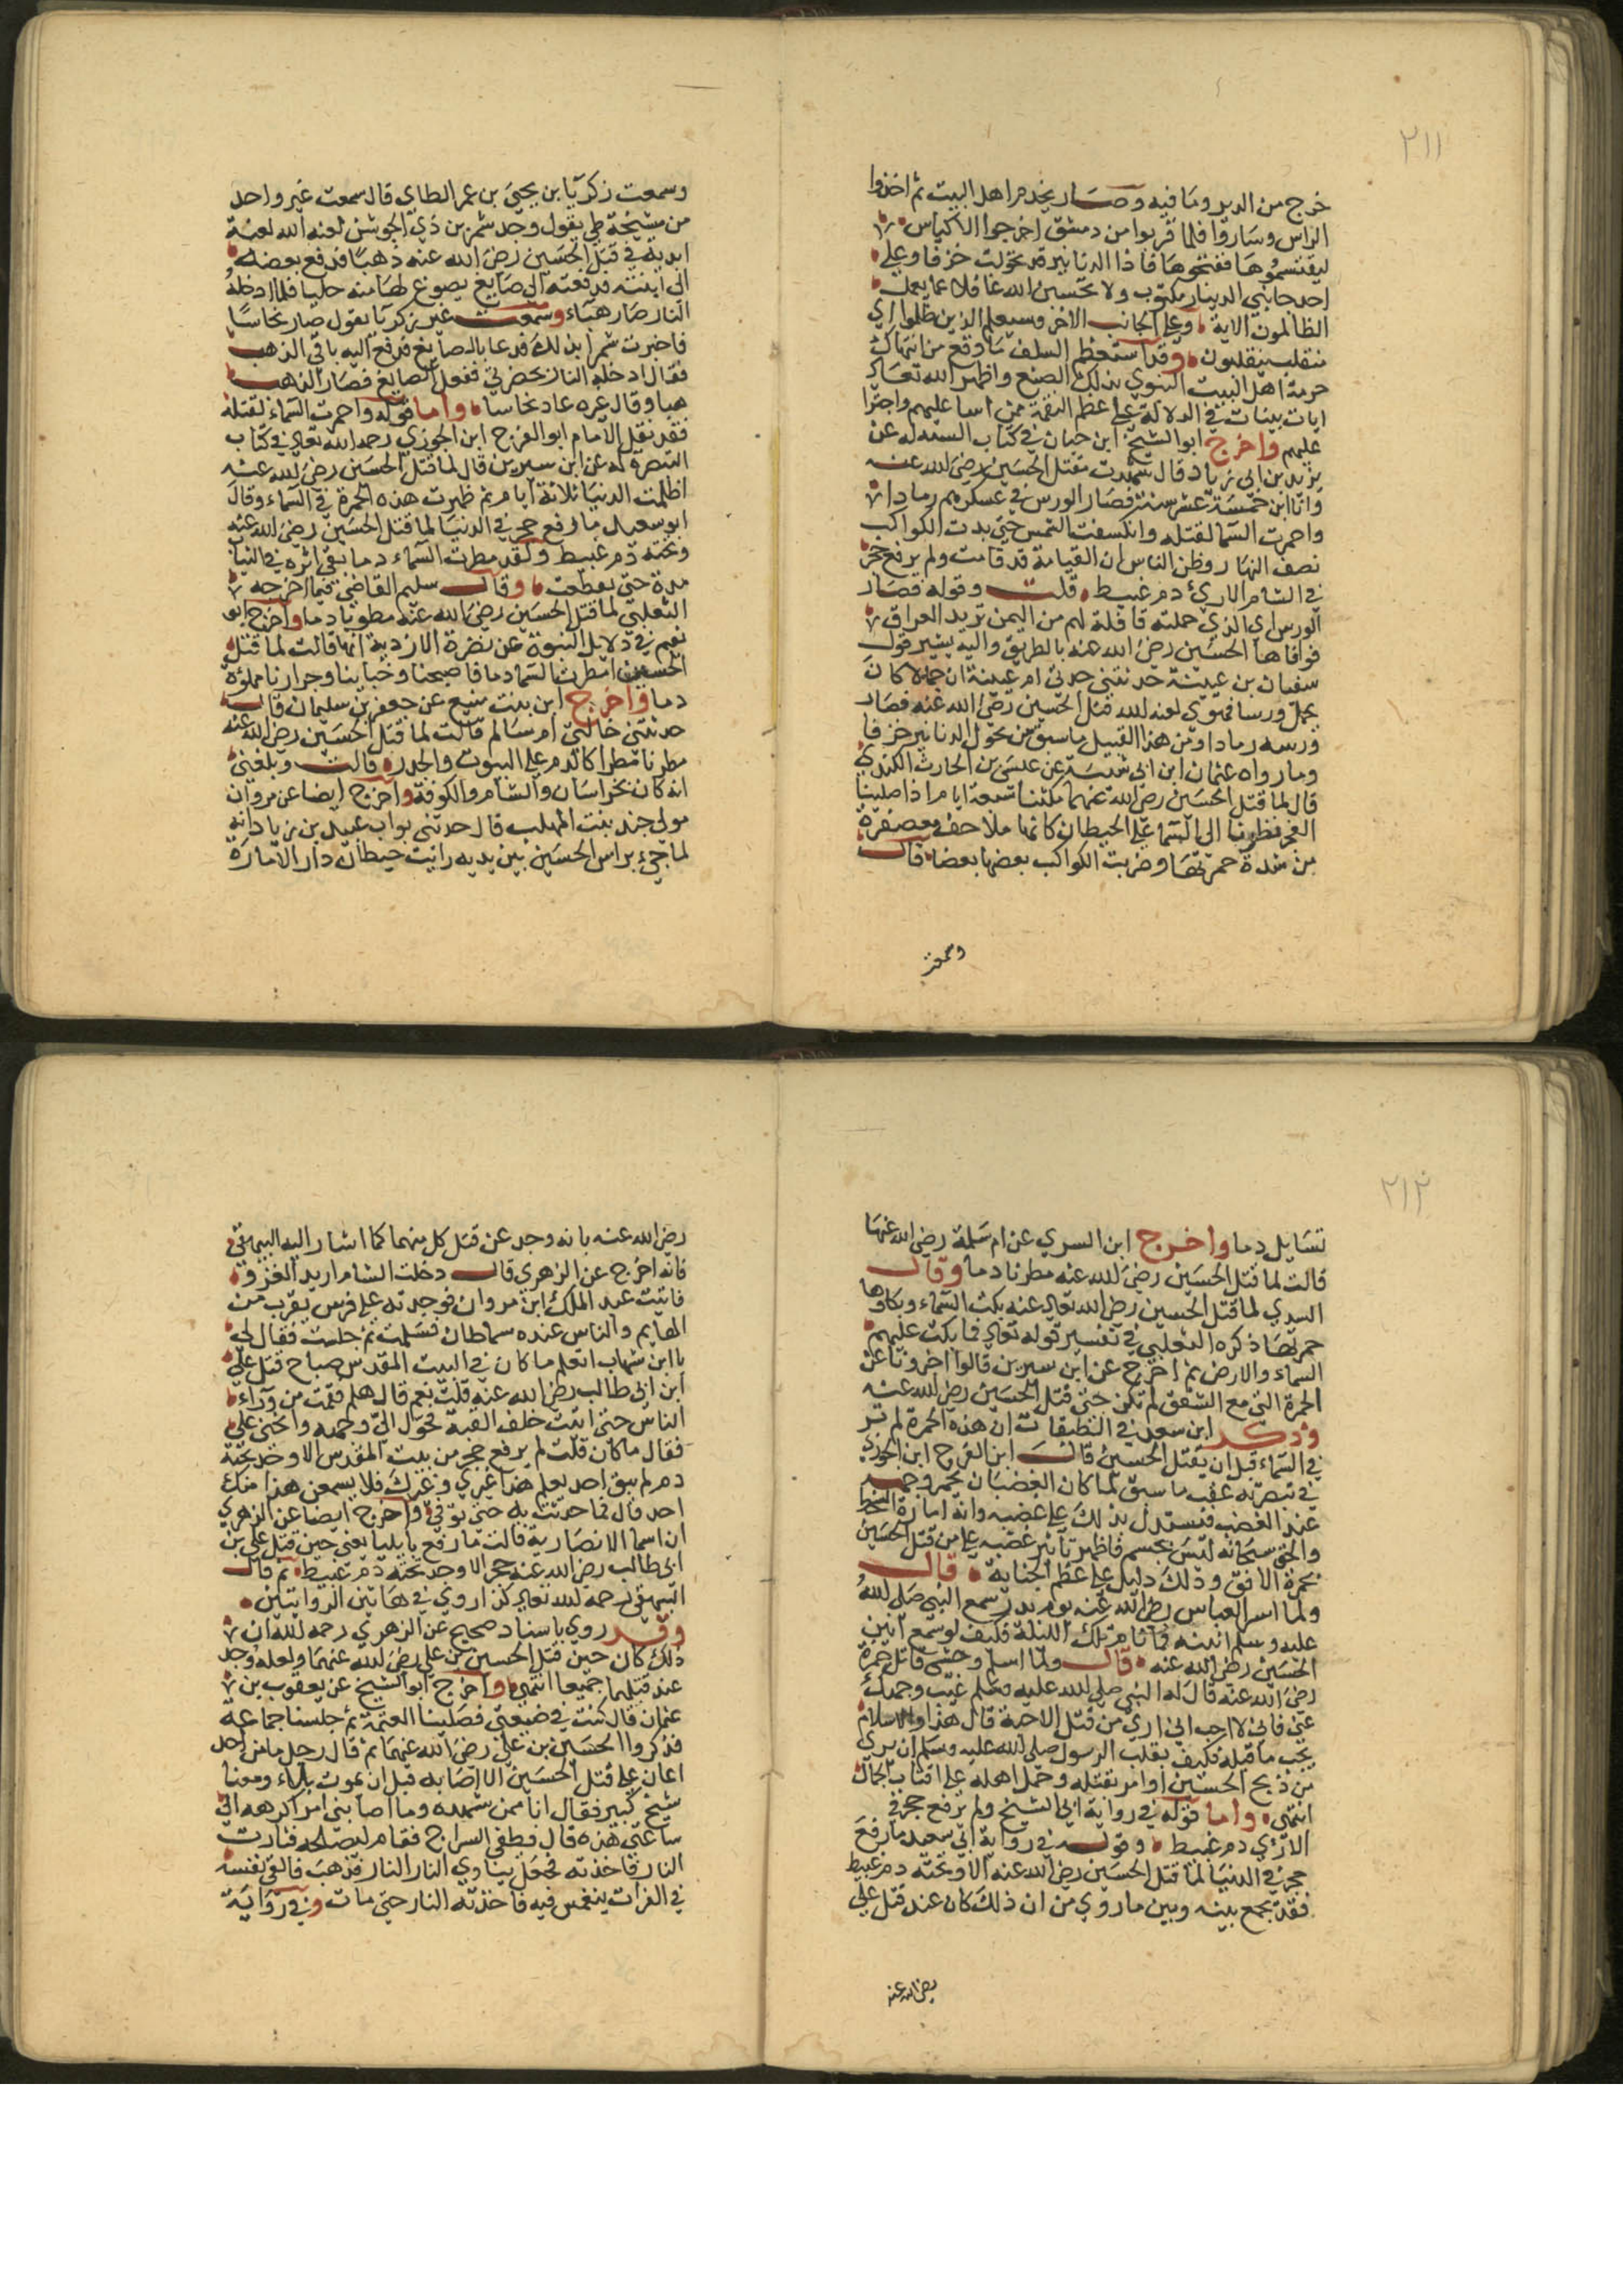 ٢١١
خرج من الدير وما فيه وصار يخدم اهل البيت ثم اخذوا
الراس وساروا فلما قربوا من دمشق اخرجوا الاكياس
ليقتسموها ففتحوها فاذا الدنانير قد تحولت خزفا وعلى
احد جانبي الدينار مكتوب ولا تحسبن الله غافلا عما يعمل
الظالمون الاية وعلى الجانب الاخر وسيعلم الذين ظلموا اي
منقلب ينقلبون وقد استعظم السلف ما وقع من انتهاك
حرمة اهل البيت النبوي بذلك الصنع واظهر الله تعالى
ايات بينات في الدلالة على عظم النقمة ممن اسا عليهم واجترا
عليهم واخرج ابو الشيخ ابن حبان في كتاب السنة له عن
يزيد بن ابي زياد قال شهدت مقتل الحسين رضي الله عنه
وانا ابن خمسة عشر سنة فصار الورس في عسكرهم رمادا
واحمرت السما لقتله وانكسفت الشمس حتى بدت الكواكب
نصف النهار وظن الناس ان القيامة قد قامت ولم يرفع حجر
في الشام الا رئ دم غبيط قلت وقوله فصار
الورس اي الذي حملته قافلة لهم من اليمن تريد العراق
فوافاها الحسين رضي الله عنه بالطريق واليه يشير قول
سفيان بن عيينة حدثتني جدتي ام عيينة ان حمالا كان
يحمل ورسا فهوي لعنه الله قتل الحسين رضي الله عنه فصار
ورسه رمادا ومن هذا القبيل ما سبق من تحول الدنانير خزفا
وما رواه عثمان ابن ابي شيبة عن عيسى بن الحارث الكندي
قال لما قتل الحسين رضي الله عنهما مكثنا سبعة ايام اذا صلينا
العصر نظرنا الى السما على الحيطان كانها ملاحف معصفرة
من شدة حمرتها وضربت الكواكب بعضها بعضا قال
وسمعت
وسمعت زكريا بن يحيى بن عمر الطاي قال سمعت غير واحد
من مشيخة طي يقول وجد شمر بن ذي الجوشن لعنه الله لعنة
ابدية في قتل الحسين رضي الله عنه ذهبا فدفع بعضه
الى ابنته فدفعته الى صايغ يصوغ لها منه حليا فلما ادخله
النار صار هباء وسمعت غير زكريا يقول صار نحاسا
فاخبرت شمرا بذلك فدعا بالصايغ فدفع اليه باقي الذهب
فقال ادخله النار بحضرتي ففعل الصايغ فصار الذهب
هبا وقال غيره عاد نحاسا واما قوله واحمرت السماء لقتله
فقد نقل الامام ابو الفرج ابن الجوزي رحمه الله تعالى في كتاب
التبصرة له عن ابن سيرين قال لما قتل الحسين رضي الله عنه
اظلمت الدنيا ثلاثة ايام ثم ظهرت هذه الحمرة في السماء وقال
ابو سعيد ما رفع حجر في الدنيا لما قتل الحسين رضي الله عنه
وتحته دم غبيط ولقد مطرت السماء دما بقي اثره في الثياب
مدة حتى تقطعت وقال سليم القاضي فيما اخرجه
الثعلبي لما قتل الحسين رضي الله عنه مطرنا دما واخرج ابو
نعيم في دلايل النبوة عن نضرة الازدية انها قالت لما قتل
الحسين امطرت السما دما فاصبحنا وخباينا وجرارنا مملؤة
دما واخرج ابن بنت منيع عن جعفر بن سليمان قال
حدثتني خالتي ام سالم قالت لما قتل الحسين رضي الله عنه
مطرنا مطرا كالدم على البيوت والجدر قالت وبلغني
انه كان بخراسان والشام والكوفة واخرج ايضا عن مروان
مولى هند بنت المهلب قال حدثني بواب عبيد بن زياد انه
لما جيء براس الحسين بين يديه رايت حيطان دار الامارة
٢١٢
تسايل دما واخرج ابن السري عن ام سلمة رضي الله عنها
قالت لما قتل الحسين رضي الله عنه مطرنا دما وقال
السدي لما قتل الحسين رضي الله تعالى عنه بكت السماء وبكاوها
حمرتها ذكره الثعلبي في تفسير قوله تعالى فما بكت عليهم
السماء والارض ثم اخرج عن ابن سيرين قالوا اخبرونا عن
الحمرة التي مع الشفق لم تكن حتى قتل الحسين رضي الله عنه
وذكر ابن سعد في الطبقات ان هذه الحمرة لم تر
في السماء قبل ان يقتل الحسين قال ابن الفرج ابن الجوزي
في تبصرته عقب ما سبق لما كان الغضبان يحمر وجهه
عند الغضب فيستدل بذلك على غضبه وانه امارة السخط
والحق سبحانه ليس بجسم فاظهر تاثير غضبه على من قتل الحسين
بحمرة الافق وذلك دليل على عظم الجناية قال
ولما اسر العباس رضي الله عنه يوم بدر سمع النبي صلى الله
عليه وسلم انينه فما نام تلك الليلة فكيف لو سمع انين
الحسين رضي الله عنه قال ولما اسلم وحشي قاتل حمزة
رضي الله عنه قال له النبي صلى الله عليه وسلم غيب وجهك
عني فاني لا احب ان ارى من قتل الاحبة قال هذا والاسلام
يجب ما قبله فكيف بقلب الرسول صلى الله عليه وسلم ان يرى
من ذبح الحسين او امر بقتله وحمل اهله على اقتاب الجمال
انتهى واما قوله في رواية ابي الشيخ ولم يرفع حجر في
الا رئي دم غبيط وقوله في رواية ابي سعيد ما رفع
حجر في الدنيا لما قتل الحسين رضي الله عنه الا وتحته دم غبيط
فقد يجمع بينه وبين ما روي من ان ذلك كان عند قتل علي
رضي الله عنه
رضي الله عنه بانه وجد عن قتل كل منهما كما اشار اليه البيهقي
فانه اخرج عن الزهري قال دخلت الشام اريد الغزو
فاتيت عبد الملك ابن مروان فوجدته على فرس يقرب من
القايم والناس عنده سماطان فسلمت ثم جلست فقال لي
يا ابن شهاب اتعلم ما كان في البيت المقدس صباح قتل علي
ابن ابي طالب رضي الله عنه قلت نعم قال هلم فقمت من وراء
الناس حتى اتيت خلف القبة فحول الي وجهه وانحنى علي
فقال ما كان قلت لم يرفع حجر من بيت المقدس الا وجد تحته
دم لم يبق احد يعلم هذا غيري وغيرك فلا يسمعن هذا منك
احد قال فما حدثت به حتى توفي واخرج ايضا عن الزهري
ان اسما الانصارية قالت ما رفع بايليا يعني حين قتل علي بن
ابي طالب رضي الله عنه حجر الا وجد تحته دم غبيط ثم قال
البيهقي رحمه الله تعالى كذا روي في هاتين الروايتين
وقد روي باسناد صحيح عن الزهري رحمه الله ان
ذلك كان حين قتل الحسين بن علي رضي الله عنهما ولعله وجد
عند قتلهما جميعا انتهى واخرج ابو الشيخ عن يعقوب بن
عثمان قال كنت في ضيعتي فصلينا العتمة ثم جلسنا جماعة
فذكروا الحسين بن علي رضي الله عنهما ثم قال رجل ما من احد
اعان على قتل الحسين الا اصابه قبل ان يموت بلاء ومعنا
شيخ كبير فقال انا ممن شهده وما اصابني امر اكرهه الى
ساعتي هذه قال فطفى السراج فقام ليصلحه فثارت
النار فاخذته فجعل ينادي النار النار فذهب فالقى نفسه
في الفرات ينغمس فيه فاخذته النار حتى مات وفي رواية